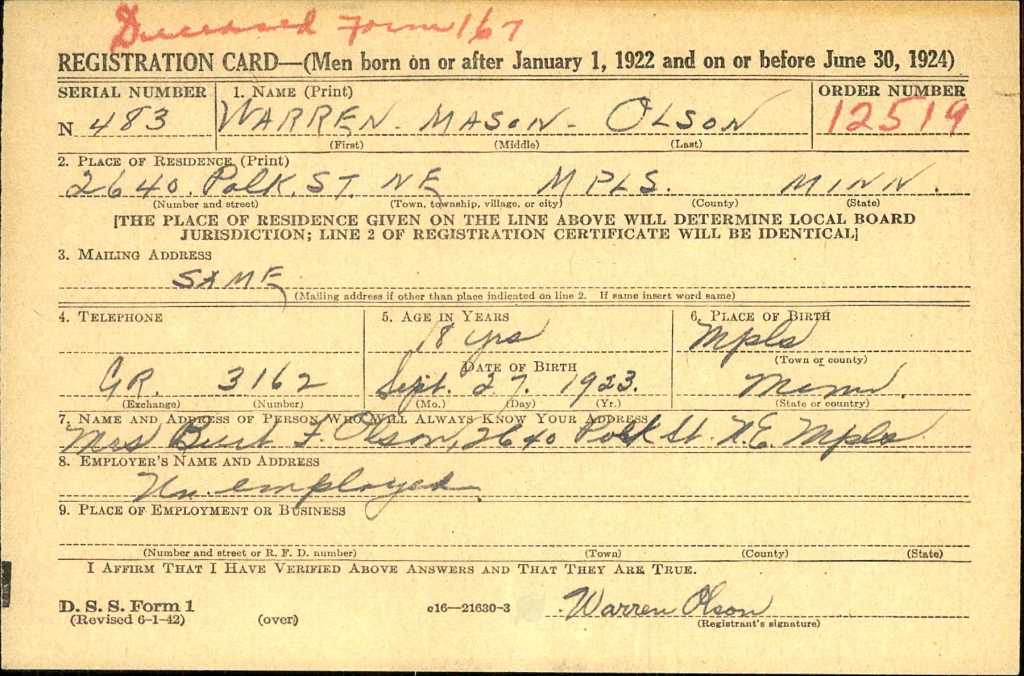 Deceased Form 167
REGISTRATION CARD—(Men born on or after January 1, 1922 and on or before June 30, 1924)
SERIAL NUMBER 1. NAME (Print) ORDER NUMBER
N 483 WARREN. MASON. OLSON 12519
(First) (Middle) (Last)
2. PLACE OF RESIDENCE (Print)
2640. Polk. ST. NE MPLS. MINN.
(Number and street) (Town, township, village, or city) (County) (State)
[THE PLACE OF RESIDENCE GIVEN ON THE LINE ABOVE WILL DETERMINE LOCAL BOARD
JURISDICTION; LINE 2 OF REGISTRATION CERTIFICATE WILL BE IDENTICAL]
3. MAILING ADDRESS
SAME
(Mailing address if other than place indicated on line 2. If same insert word same)
4. TELEPHONE 5. AGE IN YEARS 6. PLACE OF BIRTH
18 yrs Mpls
DATE OF BIRTH (Town or county)
GR. 3162 Sept. 27. 1923. Minn
(Exchange) (Number) (Mo.) (Day) (Yr.) (State or country)
7. NAME AND ADDRESS OF PERSON WHO WILL ALWAYS KNOW YOUR ADDRESS
Mrs Burt F Olson, 2640 Polk St. N.E. Mpls
8. EMPLOYER'S NAME AND ADDRESS
Un. employed.
9. PLACE OF EMPLOYMENT OR BUSINESS
(Number and street or R. F. D. number) (Town) (County) (State)
I AFFIRM THAT I HAVE VERIFIED ABOVE ANSWERS AND THAT THEY ARE TRUE.
D. S. S. Form 1 c16—21630-3 Warren Olson
(Revised 6-1-42) (over) (Registrant's signature)